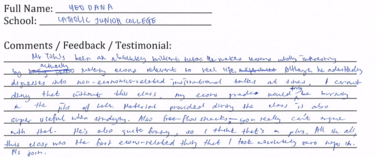 Full Name: YEO DANA
School: CATHOLIC JUNIOR COLLEGE
Comments / Feedback / Testimonial:
Mr Toh's been an absolutely brilliant tutor. He makes lessons wholly interesting
by actually making econs relevant to real life. Although he
digresses into non-economics-related talks at times, I cannot
deny that without this class, my econs grades would be truly buried
in the pits of hell. Material provided during the class is also
very useful when studying. Also free-flow snacks - you really can't argue
with that. He's also quite funny, so I think that's a plus. All in all,
this class was the first econs-related thing that I took absolutely very